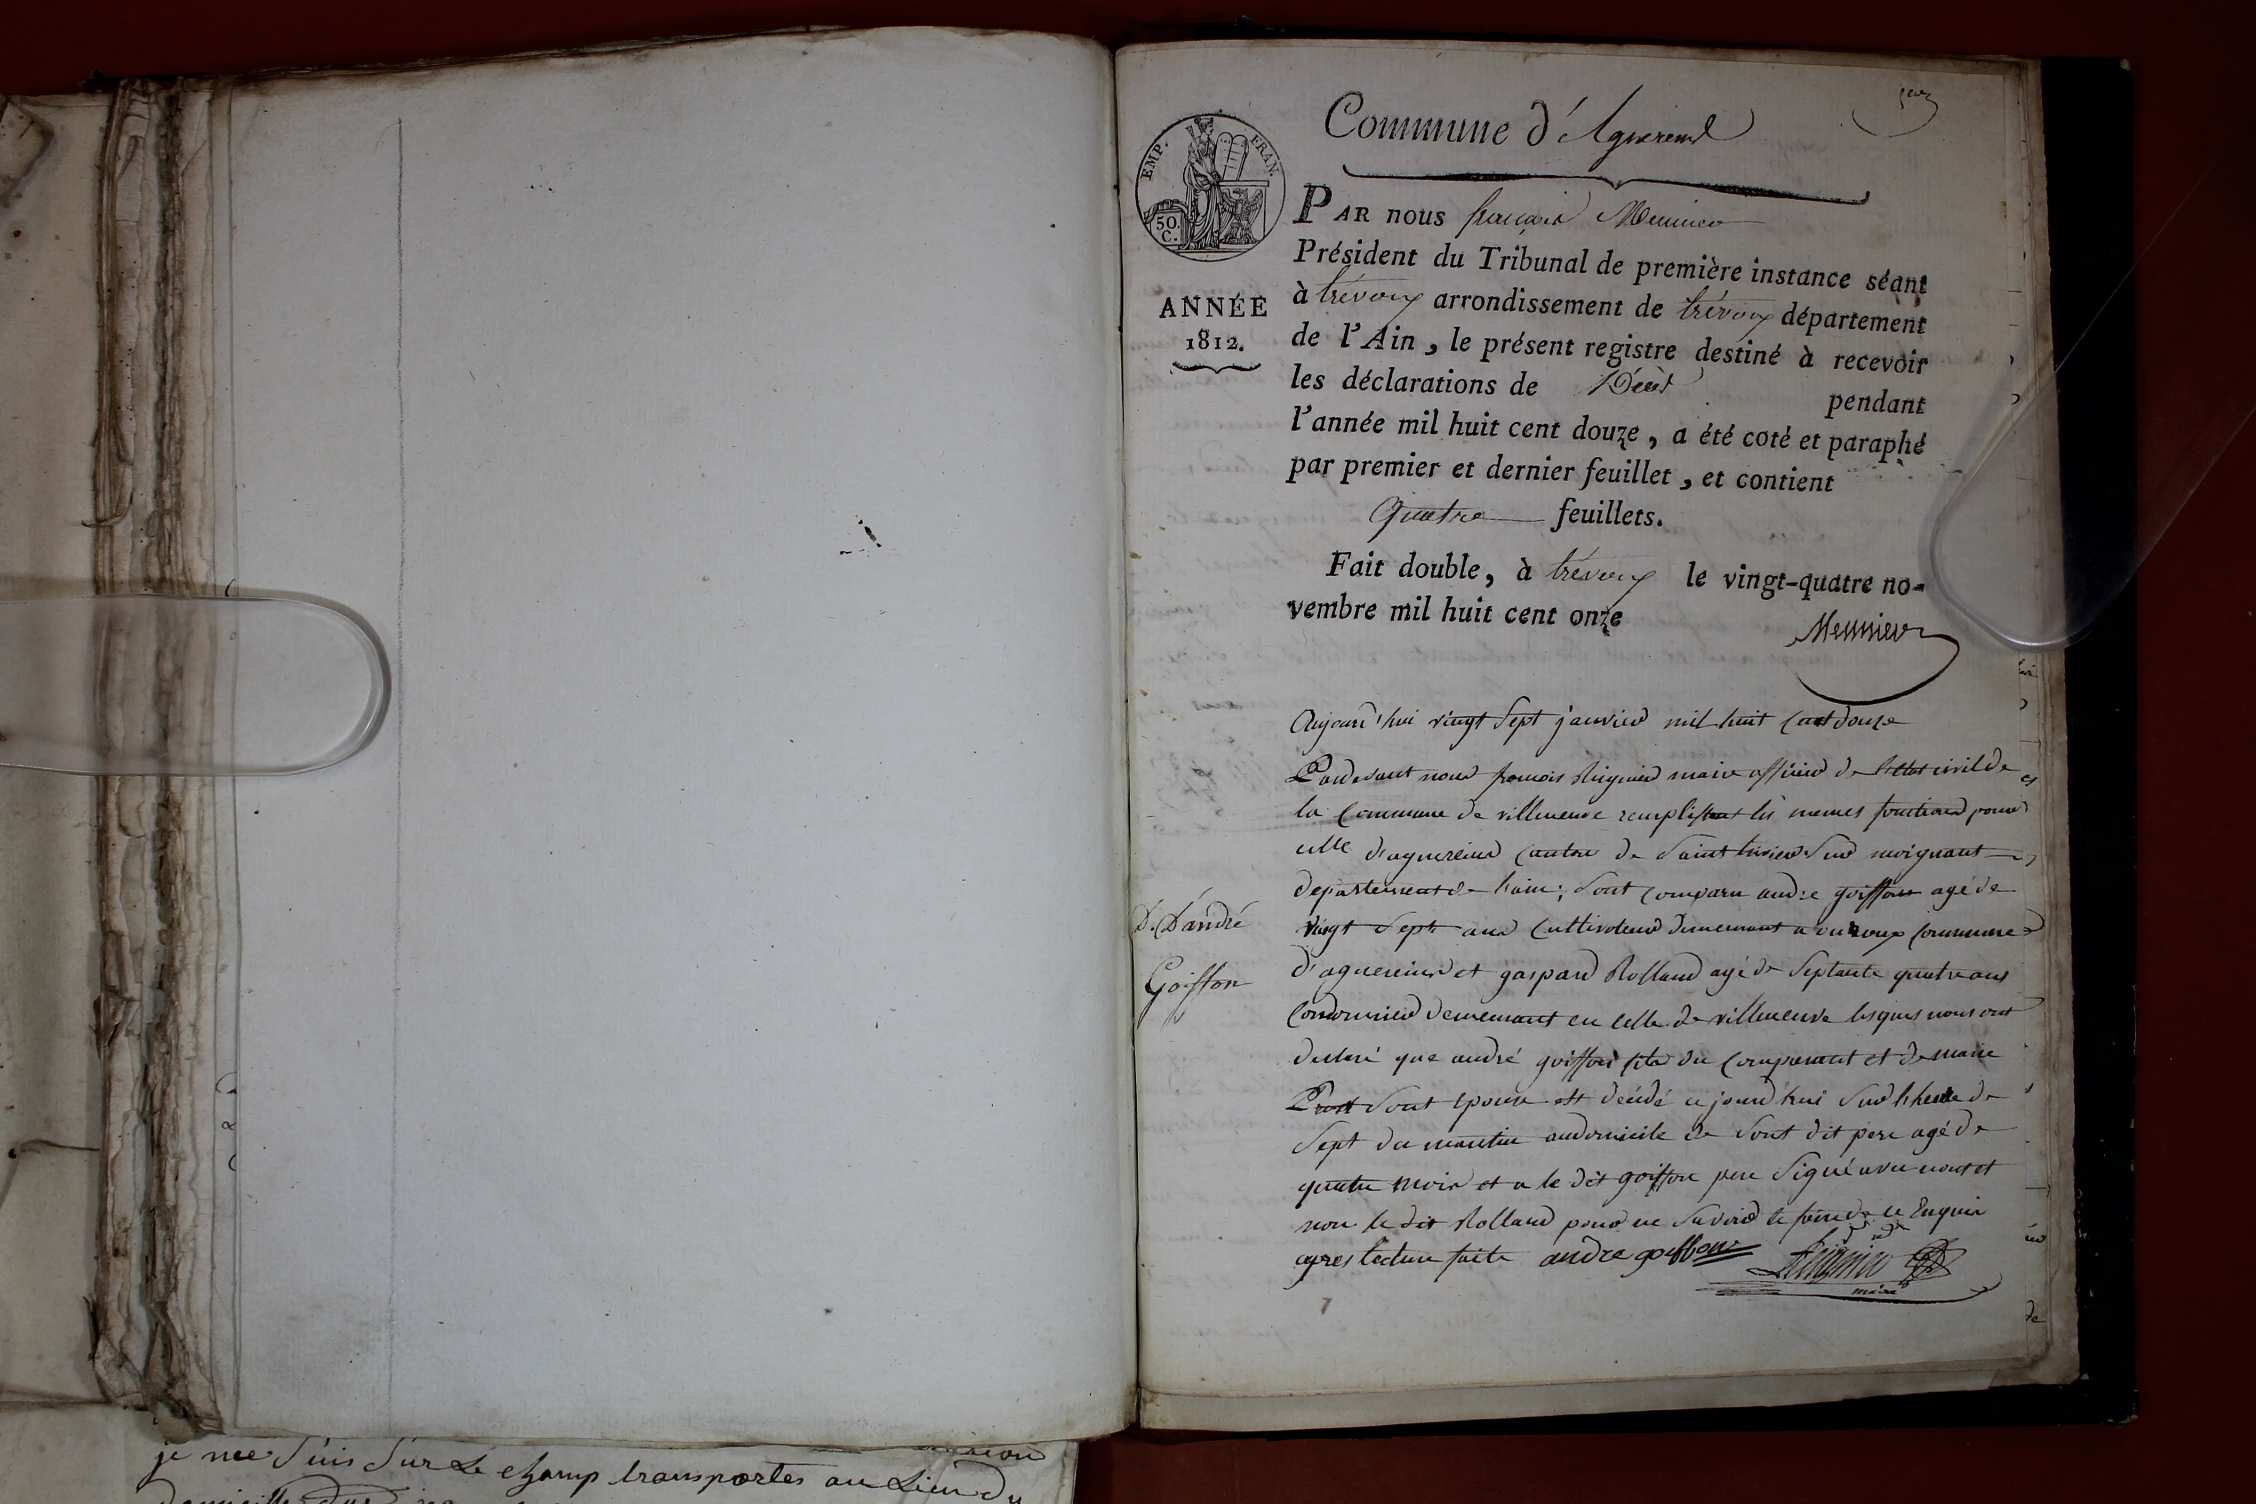 Commune d'Aguereind
EMP. FRAN.
50.
C.
ANNÉE
1812.
PAR nous françois Meunier
Président du Tribunal de première instance séant
à trévoux arrondissement de trévoux département
de l'Ain, le présent registre destiné à recevoir
les déclarations de Décès pendant
l'année mil huit cent douze, a été coté et paraphé
par premier et dernier feuillet, et contient
Quatre feuillets.
Fait double, à trévoux le vingt-quatre no-
vembre mil huit cent onze
Meunier
D. D'andré
Goiffon
Aujourd'hui vingt sept janvier mil huit cent douze
Pardevant nous françois Reignier maire officier de l'état civil de
la Commune de villeneuve remplissant les memes fonctions pour
celle d'aguereind canton de Saint trivier sur moignant
departement de l'ain, sont comparu andre goiffon agé de
vingt sept ans Cultivateur demeurant a ouroux Commune
d'aguereind et gaspard Rolland agé de Septante quatre ans
Cordonnier demeurant en celle de villeneuve lesquels nous ont
declaré que andré goiffon fils du Comparant et de marie
Prost sont epouse est décédé ce jourd'hui sur l'heure de
Sept du mantin au domicile de sont dit pere agé de
quatre mois et a le dit goiffon pere Signé avec nous et
non le dit Rolland pour ne savoir le faire de ce Enquis
apres lecture faite andre goiffon Reignier
maire
je me suis sur le champ transportés au Lieu du